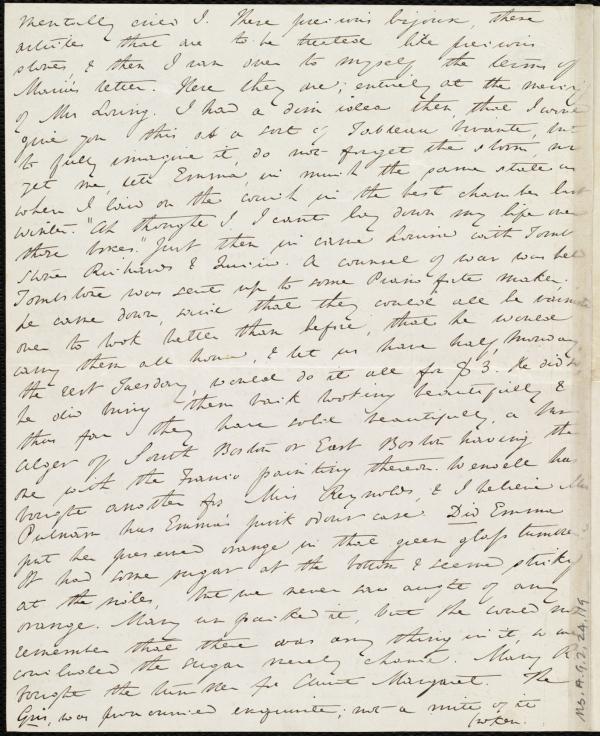 mentally cried I. These precious bijoux, these
articles that are to be treated like precious
stones, & then I ran over to myself the terms of
Maria's letter. Here they are; entirely at the mercy
of Mrs Loring. I had a dim idea then, that I would
give you this as a sort of Tableau vivante, but
to fully imagine it, do not forget the storm, nor
yet me, wh Emma, in much the same state as
when I laid on the couch in the best chamber last
winter. "Ah thought I, I cant lay down my life over
these boxes." Just then in came Louisa with Tomb
stone Richards & Quin. A counsel of war was held
Tombstone was sent up to some Piano forte maker,
he came down, said that they could all be varnished
over to look better than before, that he would
carry them all home, & let us have half, Monday,
the rest Tuesday, would do it all for $3. He did so,
he did bring them back looking beautifully &
thus far they have sold beautifully, a Mrs
Alger of South Boston or East Boston having the
one with the Franco painting thereon. Wendell has
bought another for Mrs Reynolds, & I believe Mrs
Putnam has Emma's pink odour case. Did Emma
put her preserved orange in that green glass tumbler
It had some sugar at the bottom & seemed sticky
at the sides, but we never saw aught of any
orange. Mary unpacked it, but she could not
remember that there was any thing in it, so we
concluded the sugar merely chance. Mary R.
bought the tumbler for Aunt Margaret. The
Gris, was pronounced exquisite; not a mite of it
broken.
Ms. A. 9. 2. 24, 119